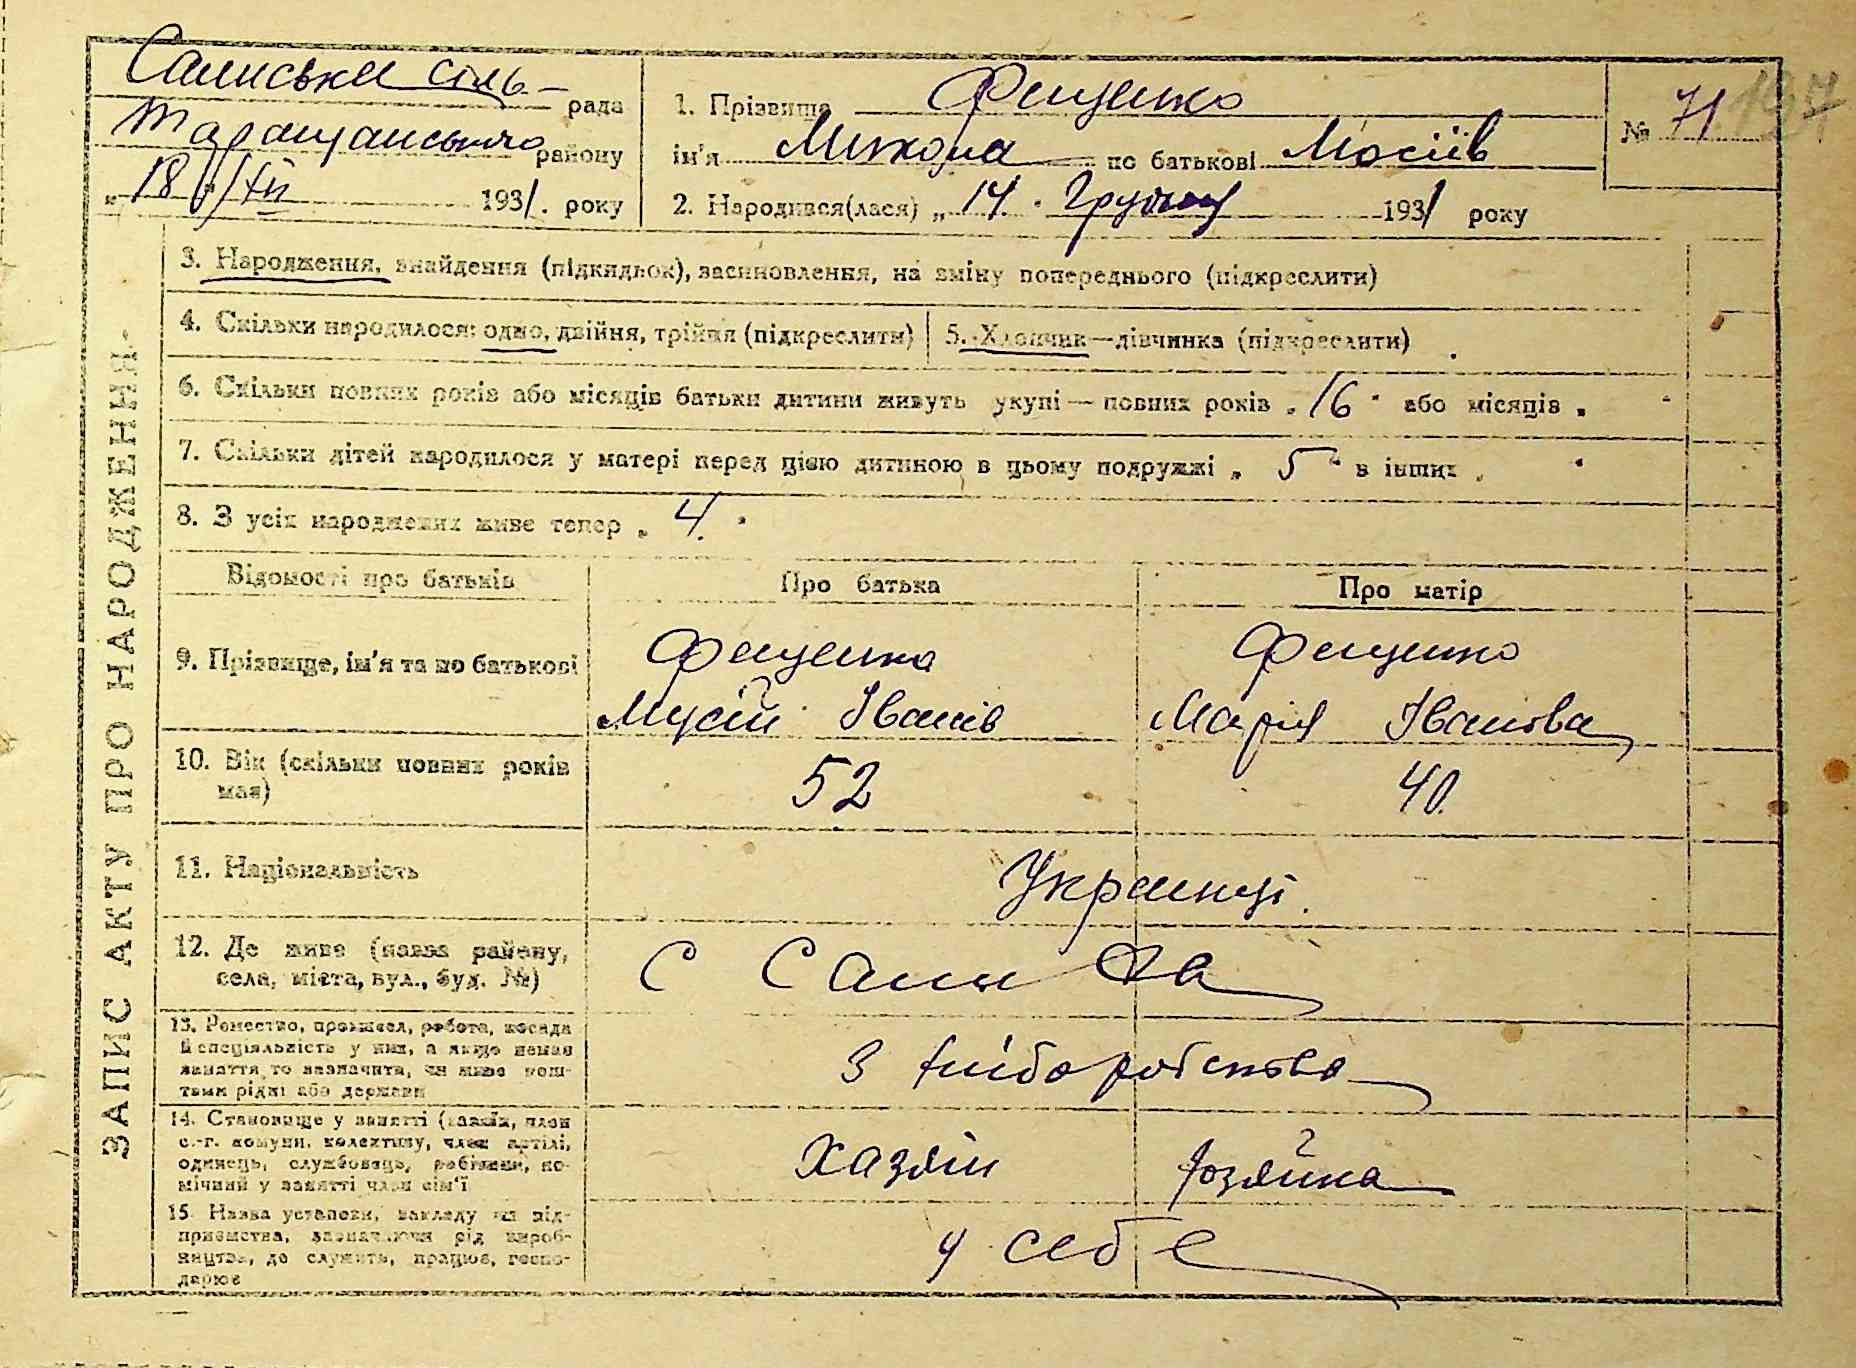 Салиська сіль-
рада
Таращанського району
„18“/XII 1931. року
1. Прізвище Фещенко
ім'я Микола по батькові Мосіїв
2. Народився(лася) „14“ Грудня 1931 року
№ 71
197
ЗАПИС АКТУ ПРО НАРОДЖЕННЯ
3. Народження, знайдення (підкидьок), засиновлення, на зміну попереднього (підкреслити)
4. Скільки народилося: одно, двійня, трійня (підкреслити)
5. Хлопчик—дівчинка (підкреслити)
6. Скільки повних років або місяців батьки дитини живуть укупі — повних років „16“ або місяців „
7. Скільки дітей народилося у матері перед цією дитиною в цьому подружжі „5“ в інших „
8. З усіх народжених живе тепер „4“
Відомості про батьків
Про батька
Про матір
9. Прізвище, ім'я та по батькові
Фещенко
Мусій Іванів
Фещенко
Марія Іванова
10. Вік (скільки повних років
має)
52
40
11. Національність
Украинці.
12. Де живе (назва району,
села, міста, вул., буд. №)
С
13. Ремество, промисел, робота, посада
й спеціяльність у них, а якщо немає
заняття, то зазначити, чи живе кош-
тами рідні або держави
З хліборобства
14. Становище у занятті (хазяїн, член
с.-г. комуни, колективу, член артілі,
одинець, службовець, робітник, по-
мічний у занятті член сім'ї
Хазяїн
хозяйка
15. Назва установи, закладу чи під-
приємства, зазначаючи рід вироб-
ництва, де служить, працює, госпо-
дарює
у себе